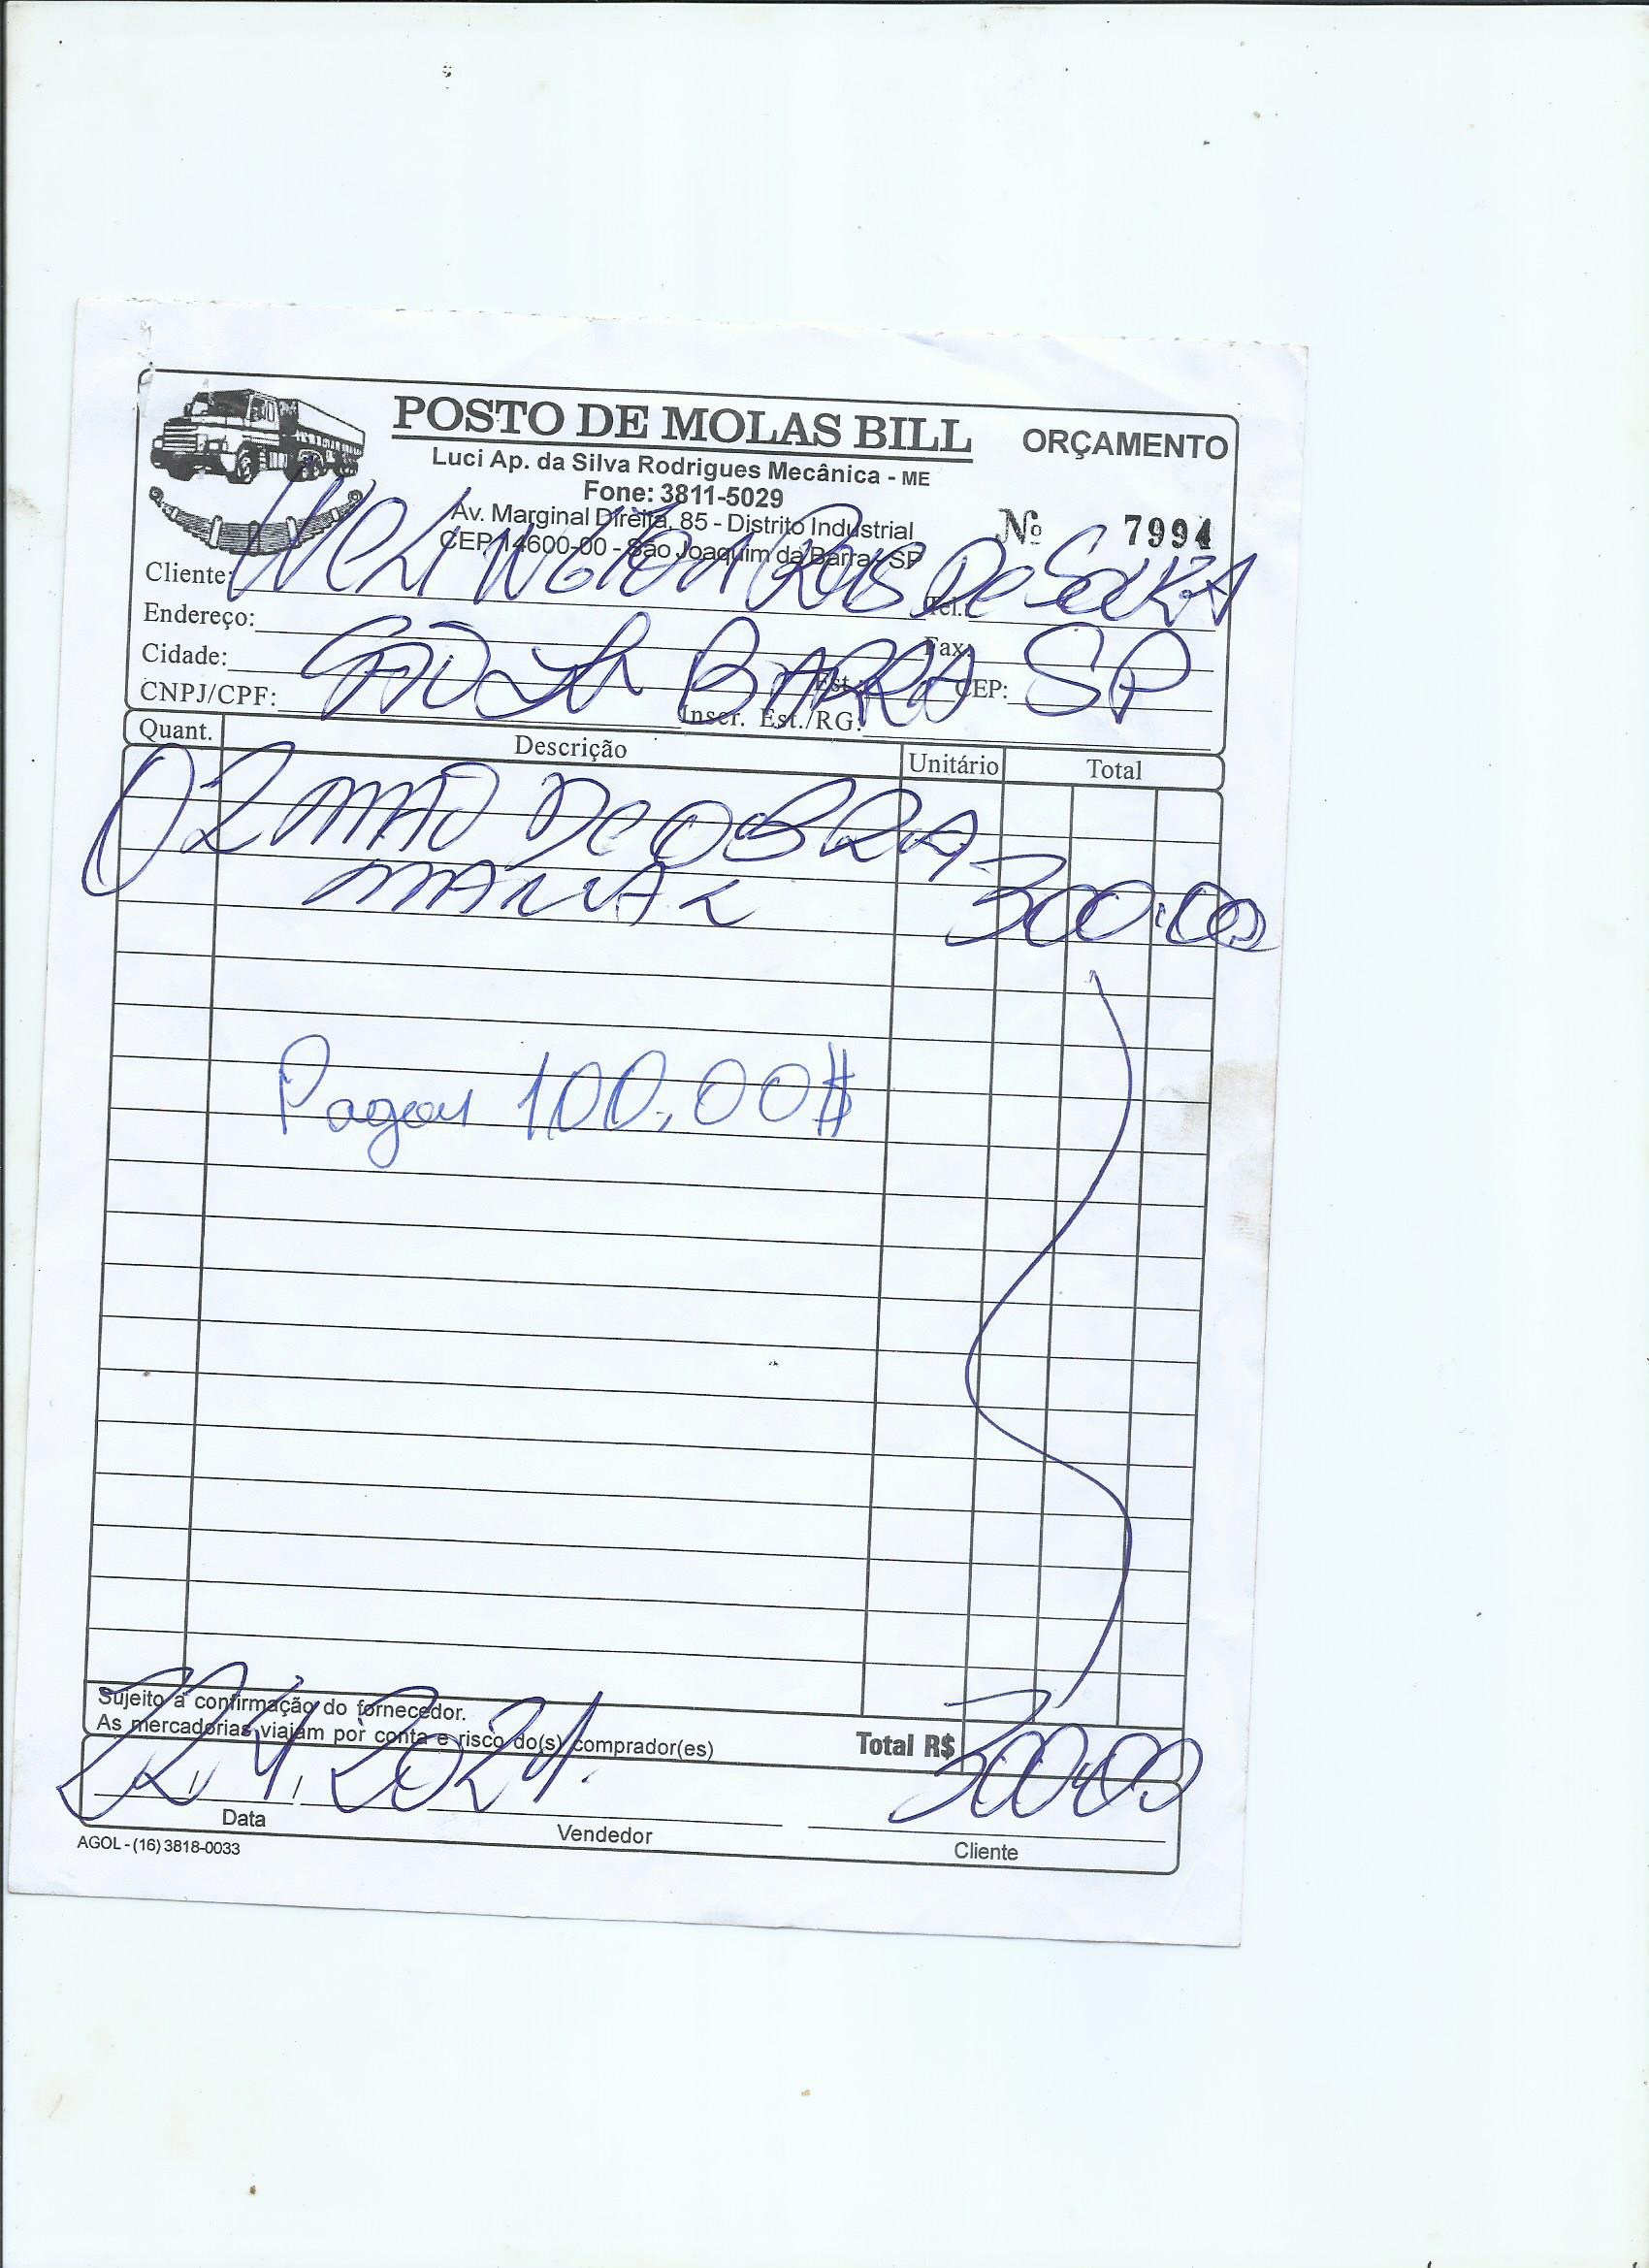 POSTO DE MOLAS BILL
ORÇAMENTO
Luci Ap. da Silva Rodrigues Mecânica - ME
Fone: 3811-5029
Av. Marginal Direita, 85 - Distrito Industrial
Nº 7994
CEP 14600-00 - São Joaquim da Barra - SP
Cliente: WELINGTON DE SOUZA
Tel.:
Endereço:
Fax:
Cidade: BARRA SP
Est.: CEP:
CNPJ/CPF: Inscr. Est./RG:
Quant. Descrição Unitário Total
02 MÃO DE OBRA
300.00
Pagou 100,00$
Sujeito à confirmação do fornecedor.
As mercadorias viajam por conta e risco do(s) comprador(es)
Total R$ 300.00
22/4/2021.
Data Vendedor Cliente
AGOL - (16) 3818-0033